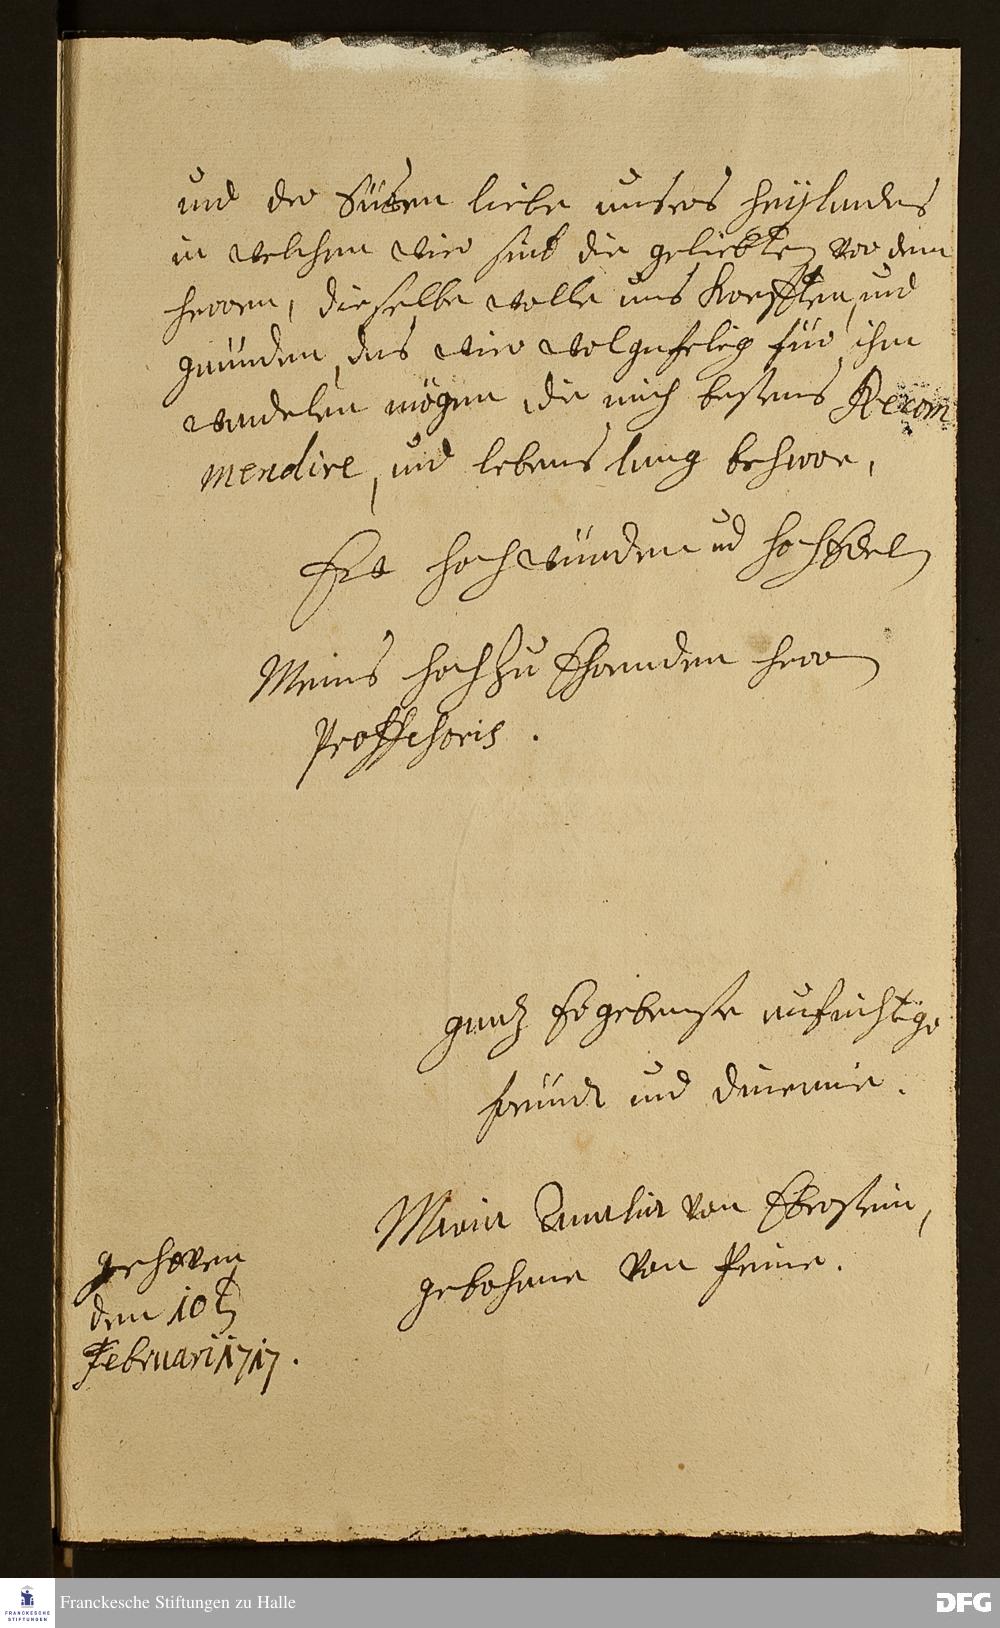 und der Süsen liebe unsers Heÿlandes
in welchem wier sind die geliebten vor dem
Herren, dieselbe wolle uns Krefften, und
gnünden, das wier wolgefelig für ihm
wandelen mögen, die mich bestens Recom
mendire, und lebenslang beharre,
Ew hochwürden und hochEdel
Meins hochzu Ehrenden Herrn
Proffesoris.
gantz Ergebenste aufrichtige
freünde und dinerine.
Maria Amelia von Eberstein,
gebohrne von Peine.
gehoven
den 10t
Februarii 1717.
Franckesche Stiftungen zu Halle
FRANCKESCHE
STIFTUNGEN
DFG